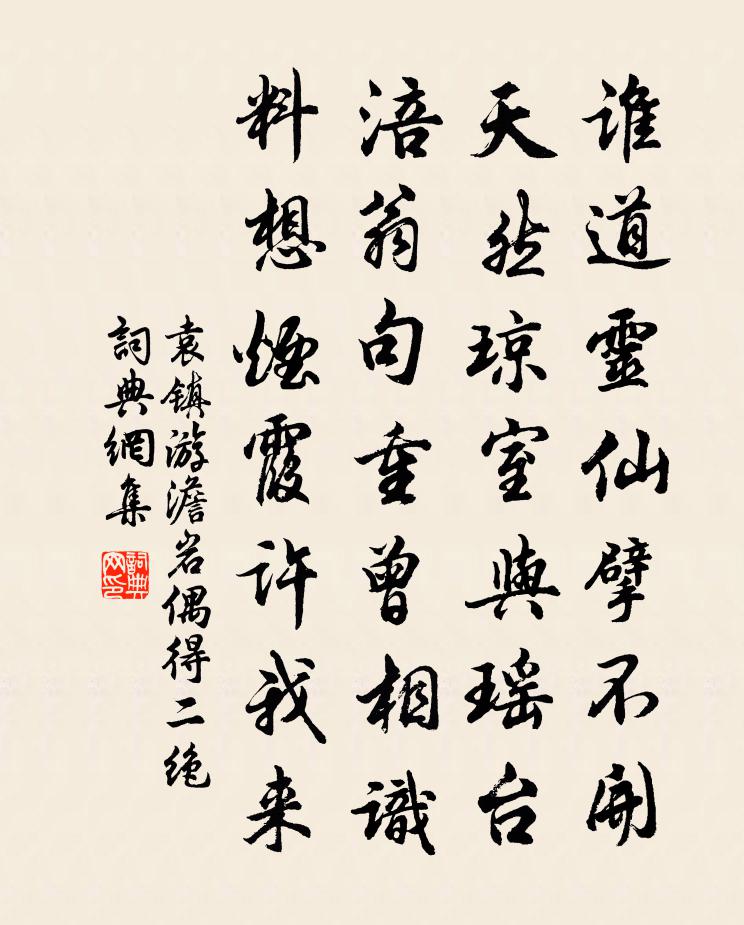 谁道靈仙擘不開
天然琼室與瑶台
涪翁句重曾相識
料想煙霞許我来
袁镇游澹岩偶得二绝
詞典網集
詞典
网印